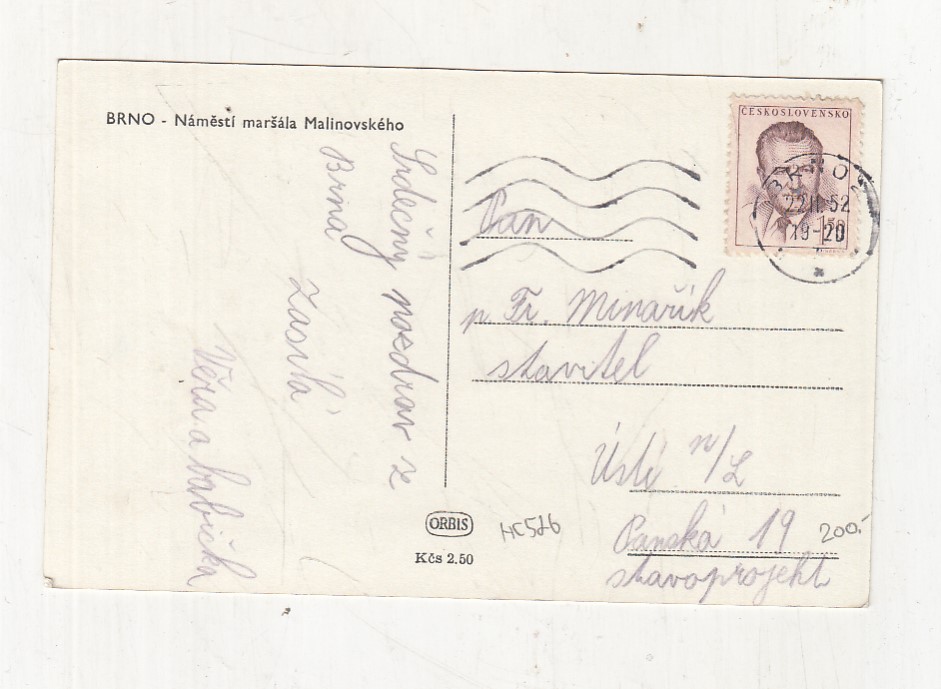 BRNO - Náměstí maršála Malinovského
Srdečný pozdrav ze
Brna
zasílá
Věra a babička
ČESKOSLOVENSKO
1.50
BRNO 2
22.II.52
19-20
Pan
p Fr. Minařík
stavitel
Ústí n/L
Panská 19
stavoprojekt
ORBIS
Kčs 2.50
HC526
200.-